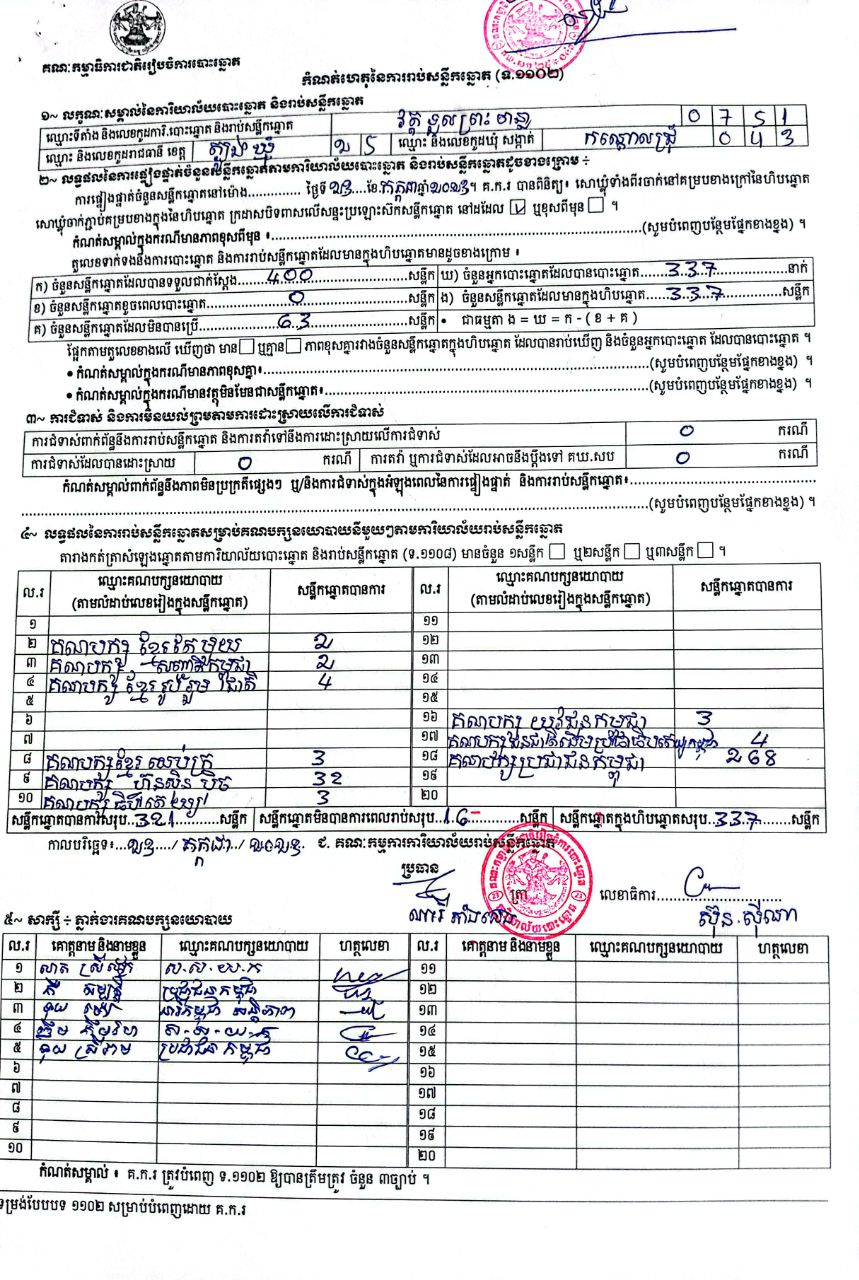 គណៈកម្មាធិការជាតិរៀបចំការបោះឆ្នោត
កំណត់ហេតុនៃការរាប់សន្លឹកឆ្នោត (ទ.១១០២)
១~ លក្ខណៈសម្គាល់នៃការិយាល័យបោះឆ្នោត និងរាប់សន្លឹកឆ្នោត
ឈ្មោះទីតាំង និងលេខកូដការិ.បោះឆ្នោត និងរាប់សន្លឹកឆ្នោត វត្តទួលព្រះ 0751
ឈ្មោះ និងលេខកូដរាជធានី ខេត្ត ត្បូងឃ្មុំ ២5 ឈ្មោះ និងលេខកូដឃុំ សង្កាត់ 043
២~ លទ្ធផលនៃការផ្ទៀងផ្ទាត់ចំនួនសន្លឹកឆ្នោតតាមការិយាល័យបោះឆ្នោត និងរាប់សន្លឹកឆ្នោតដូចខាងក្រោម ÷
ការផ្ទៀងផ្ទាត់ចំនួនសន្លឹកឆ្នោតនៅម៉ោង.............. ថ្ងៃទី ២៣ ខែ កក្កដា ឆ្នាំ ២០២៣។ គ.ក.រ បានពិនិត្យ៖ សោឃ្មុំទាំងពីរចាក់នៅគម្របខាងក្រៅនៃហិបឆ្នោត
សោឃ្មុំចាក់ភ្ជាប់គម្របខាងក្នុងនៃហិបឆ្នោត ក្រដាសបិទពាសលើសន្ទះប្រឡោះស៊កសន្លឹកឆ្នោត នៅដដែល ☑ ឬខុសពីមុន ☐ ។
កំណត់សម្គាល់ក្នុងករណីមានភាពខុសពីមុន ៖..............(សូមបំពេញបន្ថែមផ្នែកខាងខ្នង) ។
តួលេខទាក់ទងនឹងការបោះឆ្នោត និងការរាប់សន្លឹកឆ្នោតដែលមានក្នុងហិបឆ្នោតមានដូចខាងក្រោម ៖
ក) ចំនួនសន្លឹកឆ្នោតដែលបានទទួលជាក់ស្តែង 400 សន្លឹក ឃ) ចំនួនអ្នកបោះឆ្នោតដែលបានបោះឆ្នោត 337 នាក់
ខ) ចំនួនសន្លឹកឆ្នោតខូចពេលបោះឆ្នោត 0 សន្លឹក ង) ចំនួនសន្លឹកឆ្នោតដែលមានក្នុងហិបឆ្នោត 337 សន្លឹក
គ) ចំនួនសន្លឹកឆ្នោតដែលមិនបានប្រើ 63 សន្លឹក • ជាធម្មតា ង = ឃ = ក - ( ខ + គ )
ផ្អែកតាមតួលេខខាងលើ ឃើញថា មាន ☐ ឬគ្មាន ☐ ភាពខុសគ្នារវាងចំនួនសន្លឹកឆ្នោតក្នុងហិបឆ្នោត ដែលបានរាប់ឃើញ និងចំនួនអ្នកបោះឆ្នោត ដែលបានបោះឆ្នោត ។
• កំណត់សម្គាល់ក្នុងករណីមានភាពខុសគ្នា៖..............(សូមបំពេញបន្ថែមផ្នែកខាងខ្នង) ។
• កំណត់សម្គាល់ក្នុងករណីមានវត្ថុមិនមែនជាសន្លឹកឆ្នោត៖..............(សូមបំពេញបន្ថែមផ្នែកខាងខ្នង) ។
៣~ ការជំទាស់ និងការមិនយល់ព្រមតាមការដោះស្រាយលើការជំទាស់
ការជំទាស់ពាក់ព័ន្ធនឹងការរាប់សន្លឹកឆ្នោត និងការតវ៉ាទៅនឹងការដោះស្រាយលើការជំទាស់ 0 ករណី
ការជំទាស់ដែលបានដោះស្រាយ 0 ករណី ការតវ៉ា ឬការជំទាស់ដែលអាចនឹងប្តឹងទៅ គឃ.សប 0 ករណី
កំណត់សម្គាល់ពាក់ព័ន្ធនឹងភាពមិនប្រក្រតីផ្សេងៗ ឬ/និងការជំទាស់ក្នុងអំឡុងពេលនៃការផ្ទៀងផ្ទាត់ និងការរាប់សន្លឹកឆ្នោត៖..............
..............(សូមបំពេញបន្ថែមផ្នែកខាងខ្នង) ។
៤~ លទ្ធផលនៃការរាប់សន្លឹកឆ្នោតសម្រាប់គណបក្សនយោបាយនីមួយៗតាមការិយាល័យរាប់សន្លឹកឆ្នោត
តារាងកត់ត្រាសំឡេងឆ្នោតតាមការិយាល័យបោះឆ្នោត និងរាប់សន្លឹកឆ្នោត (ទ.១១០៨) មានចំនួន ១សន្លឹក ☐ ឬ២សន្លឹក ☐ ឬ៣សន្លឹក ☐ ។
ល.រ ឈ្មោះគណបក្សនយោបាយ (តាមលំដាប់លេខរៀងក្នុងសន្លឹកឆ្នោត) សន្លឹកឆ្នោតបានការ ល.រ ឈ្មោះគណបក្សនយោបាយ (តាមលំដាប់លេខរៀងក្នុងសន្លឹកឆ្នោត) សន្លឹកឆ្នោតបានការ
១ ១១
២ គណបក្ស ខ្មែរតែមួយ ២ ១២
៣ គណបក្ស សញ្ជាតិកម្ពុជា ២ ១៣
៤ គណបក្ស ខ្មែររួបរួមជាតិ 4 ១៤
៥ ១៥
៦ ១៦ គណបក្ស យុវជនកម្ពុជា 3
៧ ១៧ គណបក្សជនជាតិដើមប្រជាធិបតេយ្យកម្ពុជា 4
៨ គណបក្សខ្មែរ 3 ១៨ គណបក្សប្រជាជនកម្ពុជា ២68
៩ គណបក្ស ហ៊្វុនស៊ិនប៉ិច 32 ១៩
១០ គណបក្ស ធិបតេយ្យ 3 ២០
សន្លឹកឆ្នោតបានការសរុប 321 សន្លឹក សន្លឹកឆ្នោតមិនបានការពេលរាប់សរុប 16 សន្លឹក សន្លឹកឆ្នោតក្នុងហិបឆ្នោតសរុប 337 សន្លឹក
កាលបរិច្ឆេទ៖ ២៣ / កក្កដា / ២០២៣. ជ. គណៈកម្មការការិយាល័យរាប់សន្លឹកឆ្នោត
ប្រធាន ត្រា លេខាធិការ
ស៊ុន ស៊ីណា
៥~ សាក្សី ÷ ភ្នាក់ងារគណបក្សនយោបាយ
ល.រ គោត្តនាម និងនាមខ្លួន ឈ្មោះគណបក្សនយោបាយ ហត្ថលេខា ល.រ គោត្តនាម និងនាមខ្លួន ឈ្មោះគណបក្សនយោបាយ ហត្ថលេខា
១ ស.ស.យ.ក ១១
២ ប្រជាជនកម្ពុជា ១២
៣ នារីកម្ពុជា សន្តិភាព ១៣
៤ ស.ស.យ.ក ១៤
៥ ប្រជាជនកម្ពុជា ១៥
៦ ១៦
៧ ១៧
៨ ១៨
៩ ១៩
១០ ២០
កំណត់សម្គាល់ ៖ គ.ក.រ ត្រូវបំពេញ ទ.១១០២ ឱ្យបានត្រឹមត្រូវ ចំនួន ៣ច្បាប់ ។
ទម្រង់បែបបទ ១១០២ សម្រាប់បំពេញដោយ គ.ក.រ